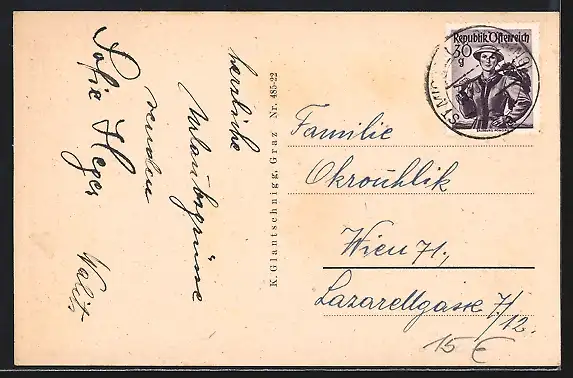 herzliche
Urlaubsgrüsse
senden
Sofie Heger
K. Glantschnigg, Graz Nr. 485-22
Republik Österreich
30
g
Familie
Okrouhlik
Wien 71,
Lazarettgasse 7/
12.
15 €